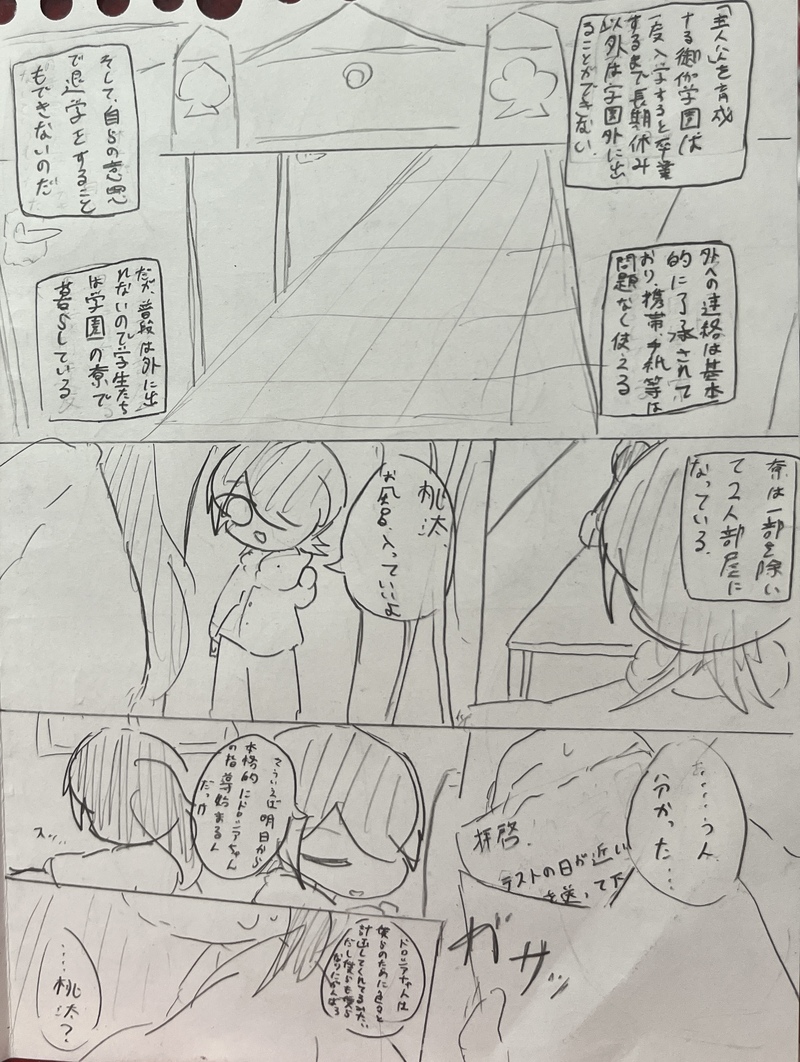 「主人公」を育成
する御伽学園は
一度入学すると卒業
するまで長期休み
以外は学園外に出
ることができない
外への連絡は基本
的に了承されて
おり、携帯、手紙等は
問題なく使える
そして、自らの意思
で退学をすること
もできないのだ
だが、普段は外に出
れないので学生たち
は学園の寮で
暮らしている
寮は一部を除い
て2人部屋に
なっている.
桃汰、
お風呂、入っていいよ
あ……うん
分かった…
拝啓.
テストの日が近い
を送って下
ガサッ
そういえば明日から
本格的にドロシアちゃん
の指導始まるん
だっけ
スッ…
ドロシアちゃんは
僕らのために色々と
計画してくれてるみたい
だし僕らも僕ら
なりにがんばろ
…桃汰?